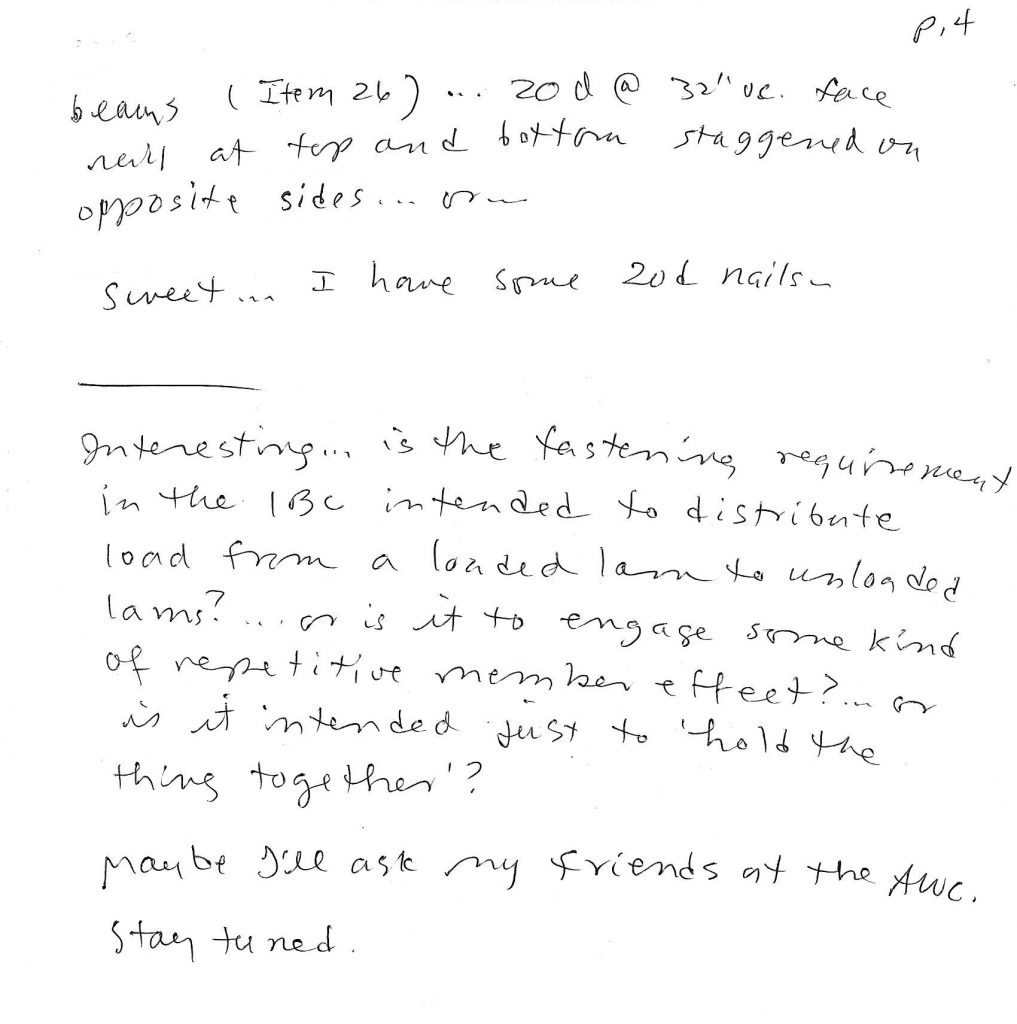 p.4
beams (Item 26)... 20d @ 32" oc. face
nail at top and bottom staggered on
opposite sides... or
sweet... I have some 20d nails
Interesting... is the fastening requirement
in the IBC intended to distribute
load from a loaded lam to unloaded
lams?... or is it to engage some kind
of repetitive member effect?... or
is it intended just to 'hold the
thing together'?
Maybe I'll ask my friends at the AWC.
Stay tuned.